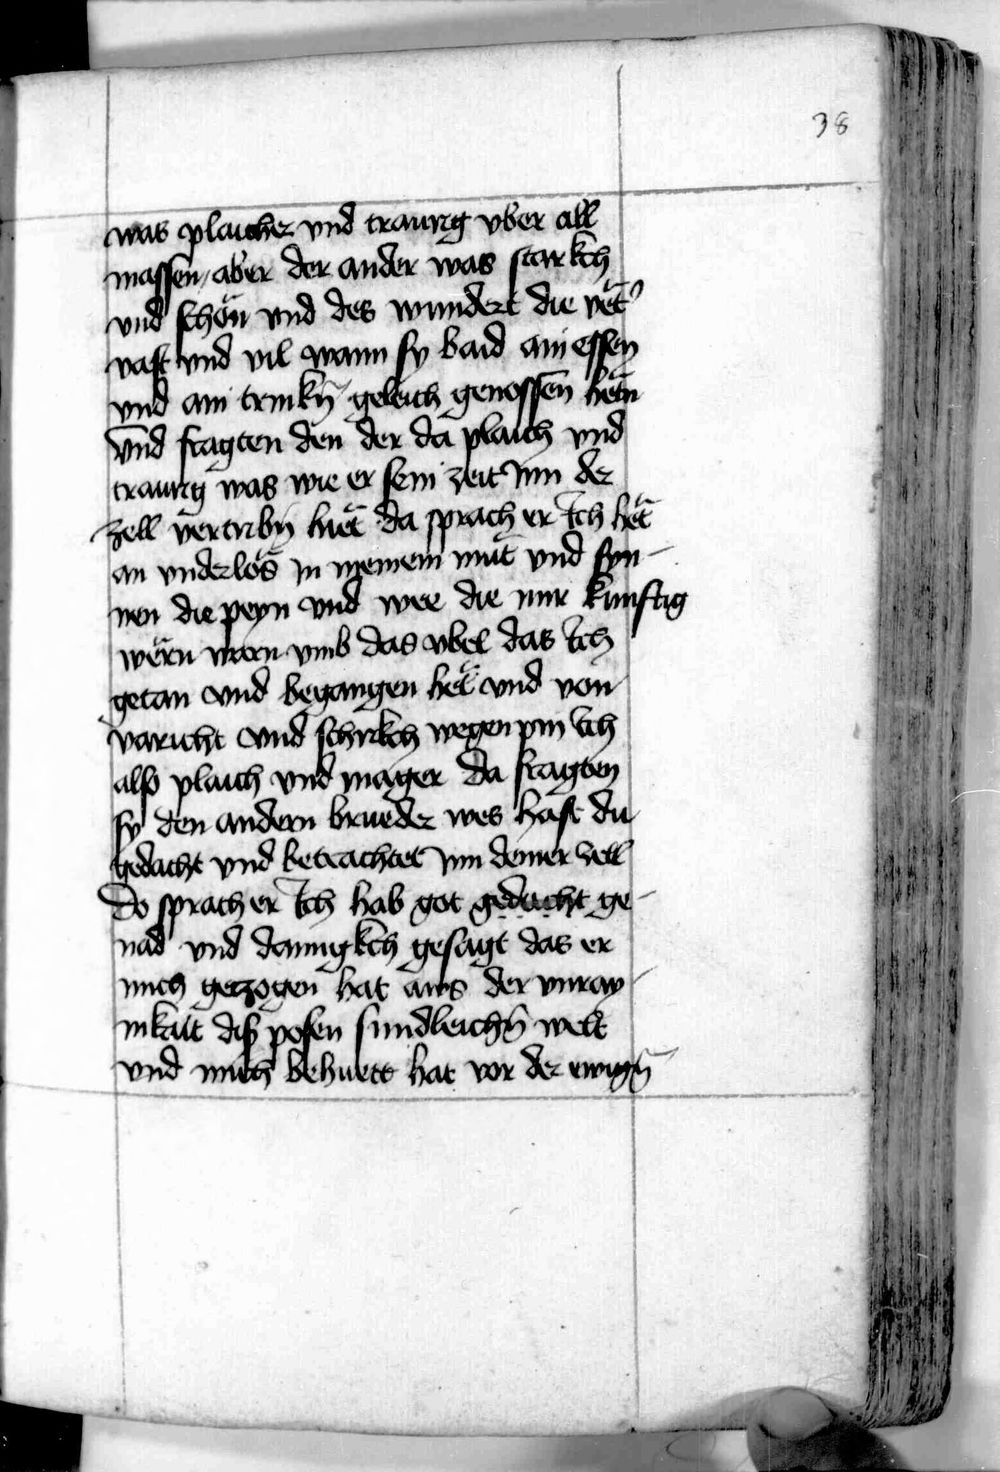 38
was plaicher vnd traurig vber all
massen / aber der ander was starkch
vnd schön vnd des wundert die vët’
vast vnd vil wann sy baid ain essen
vnd ain trinkñ geleich genossen hëtn̄
vnd fragten den der da plaich vnd
traurig was wie er sein zeit Inn der
zell vertribñ hiet da sprach er Ich hët
an vnderlos in meinem mut vnd syn-
nen die peyn vnd wee die mir kunftig
wërn warn vmb das vbel das Ich
getan vnd begangen het vnd von
varicht vnd schrikch wegen pin Ich
also plaich vnd mager da fragten
sy den andern brueder wes hast du
gedacht vnd betrachtet Inn deiner zell
Do sprach er Ich hab got gedacht ge-
nad vnd dannigkch gesagt das er
mich geczogen hat aws der vnray-
nikait diß posen sundleichñ welt
vnd mich behuett hat vor der ewigñ